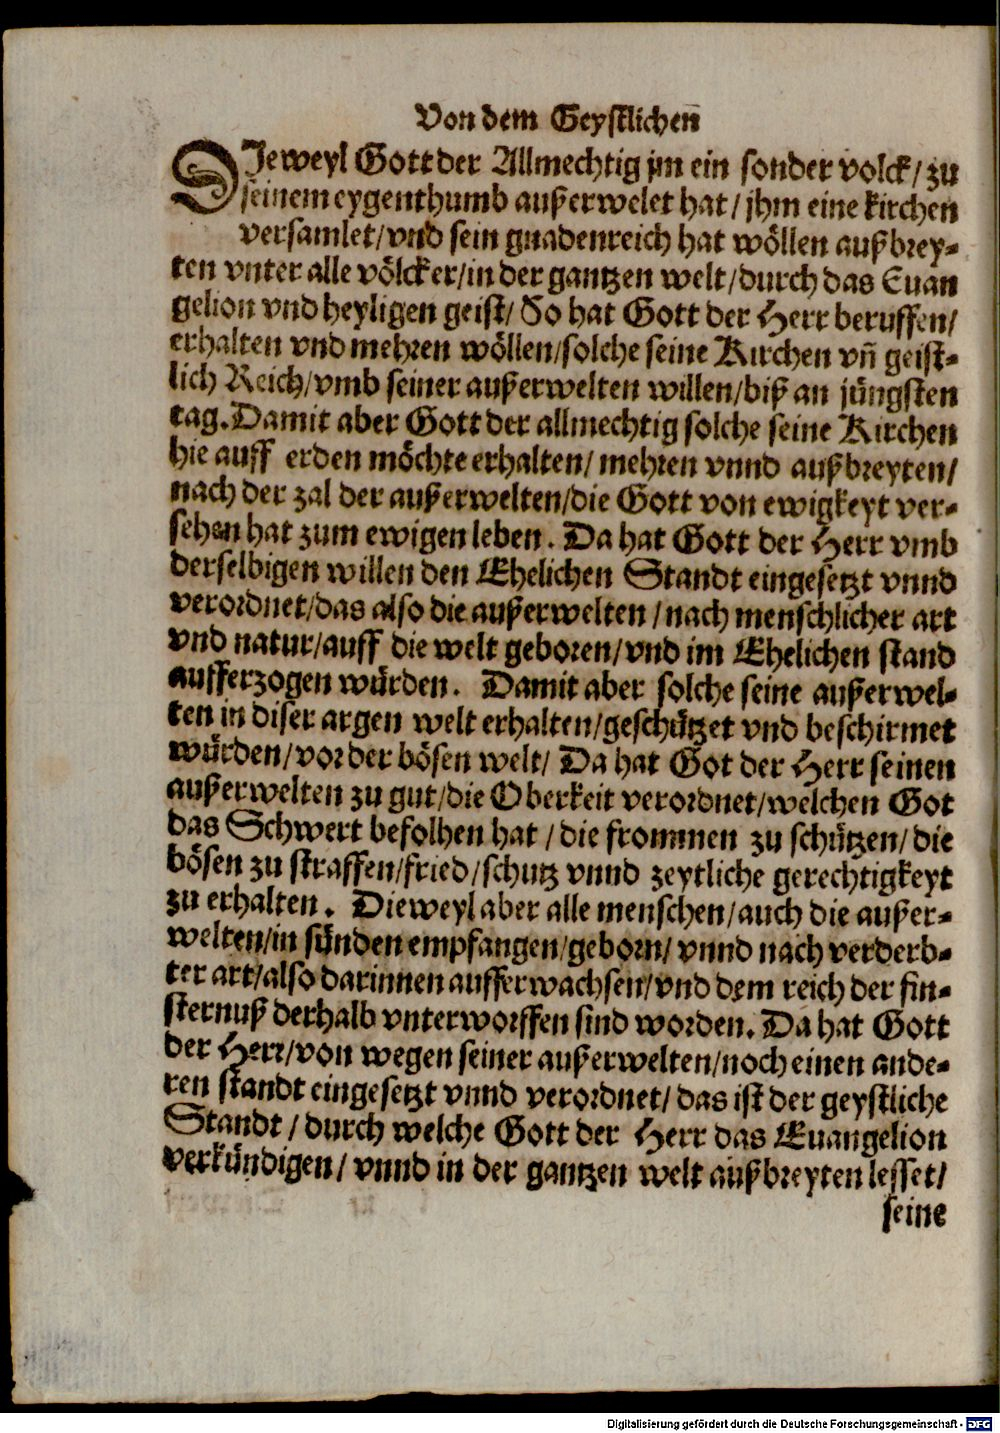 Von dem Geystlichen
DJeweyl Gott der Allmechtig jm ein sonder volck/ zu
seinem eygenthumb außerwelet hat/ jhm eine kirchen
versamlet/vnd sein gnadenreich hat wöllen außbrey-
ten vnter alle völcker/in der gantzen welt/durch das Euan
gelion vnd heyligen geist/ So hat Gott der Herr beruffen/
erhalten vnd mehren wöllen/solche seine Kirchen vñ geist-
lich Reich/vmb seiner außerwelten willen/biß an jüngsten
tag. Damit aber Gott der allmechtig solche seine Kirchen
hie auff erden möchte erhalten/ mehren vnnd außbreyten/
nach der zal der außerwelten/die Gott von ewigkeyt ver-
sehen hat zum ewigen leben. Da hat Gott der Herr vmb
derselbigen willen den Ehelichen Standt eingesetzt vnnd
verordnet/das also die außerwelten / nach menschlicher art
vnd natur/auff die welt geboren/vnd im Ehelichen stand
aufferzogen würden. Damit aber solche seine außerwel-
ten in diser argen welt erhalten/geschützet vnd beschirmet
würden/vor der bösen welt/ Da hat Got der Herr seinen
außerwelten zu gut/die Oberkeit verordnet/welchen Got
das Schwert befolhen hat / die frommen zu schützen/ die
bösen zu straffen/fried/schutz vnnd zeytliche gerechtigkeyt
zu erhalten. Dieweyl aber alle menschen/auch die außer-
welten/in sünden empfangen/geborn/ vnnd nach verderb-
ter art/also darinnen aufferwachsen/vnd dem reich der fin-
sternuß derhalb vnterworffen sind worden. Da hat Gott
der Herr/von wegen seiner außerwelten/noch einen ande-
ren standt eingesetzt vnnd verordnet/ das ist der geystliche
Standt / durch welche Gott der Herr das Euangelion
verkündigen/ vnnd in der gantzen welt außbreyten lesset/
seine
Digitalisierung gefördert durch die Deutsche Forschungsgemeinschaft - DFG